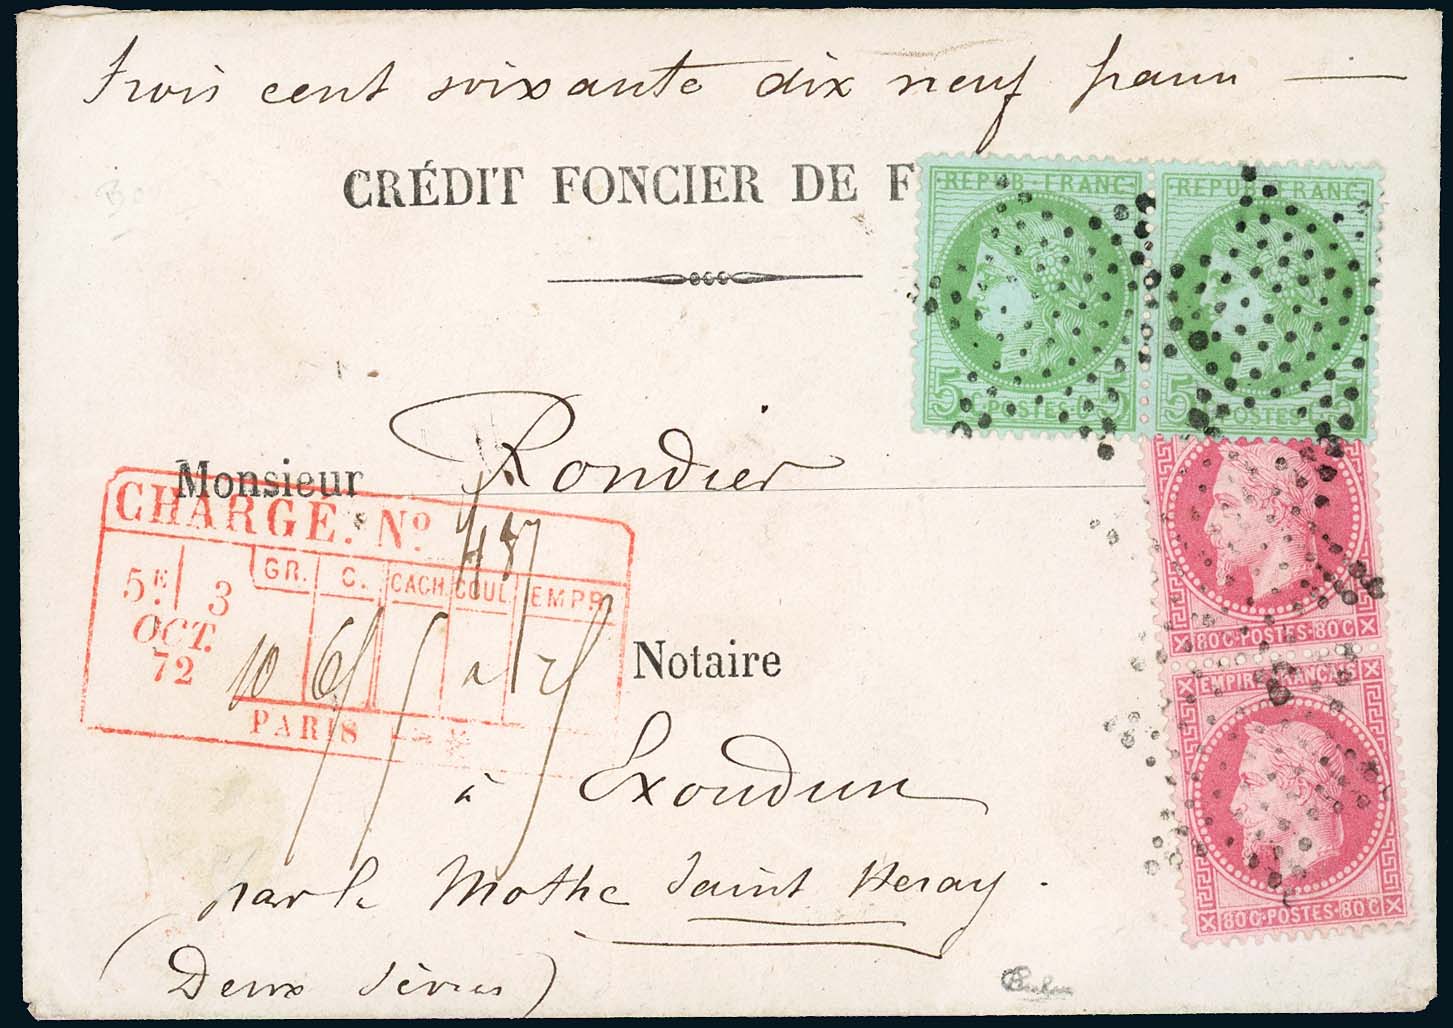 Trois cent soixante dix neuf francs
CRÉDIT FONCIER DE F
REPUB. FRANC.
REPUB. FRANC.
5 POSTES 5
5 POSTES
Monsieur Rondier
CHARGÉ. Nº 487
GR. C. CACH. COUL. EMPR.
5E 3
OCT.
72
10
PARIS
80C·POSTES·80C
EMPIRE FRANÇAIS
Notaire
à Exoudun
80C·POSTES·80C
par la Mothe Saint Heray.
(Deux Sèvres)